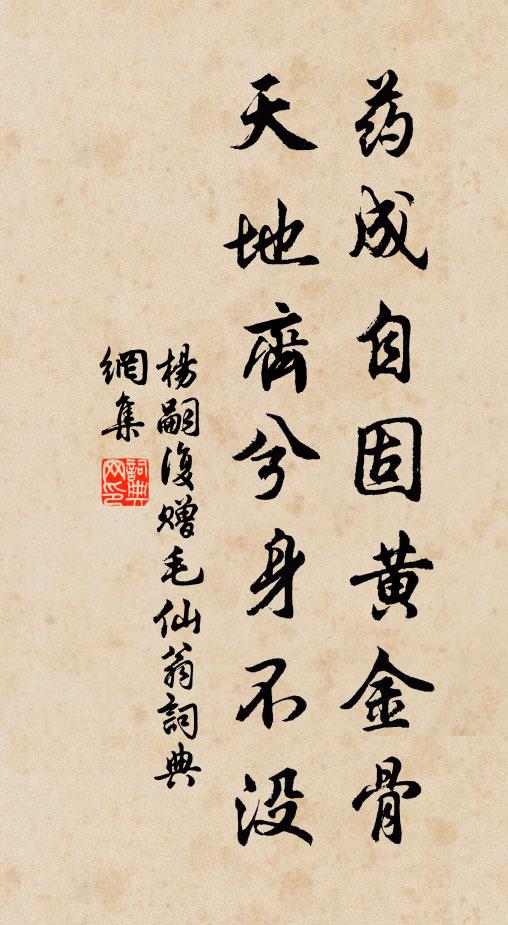 药成自固黄金骨
天地齊兮身不没
楊嗣復赠毛仙翁詞典
網集
詞典网印